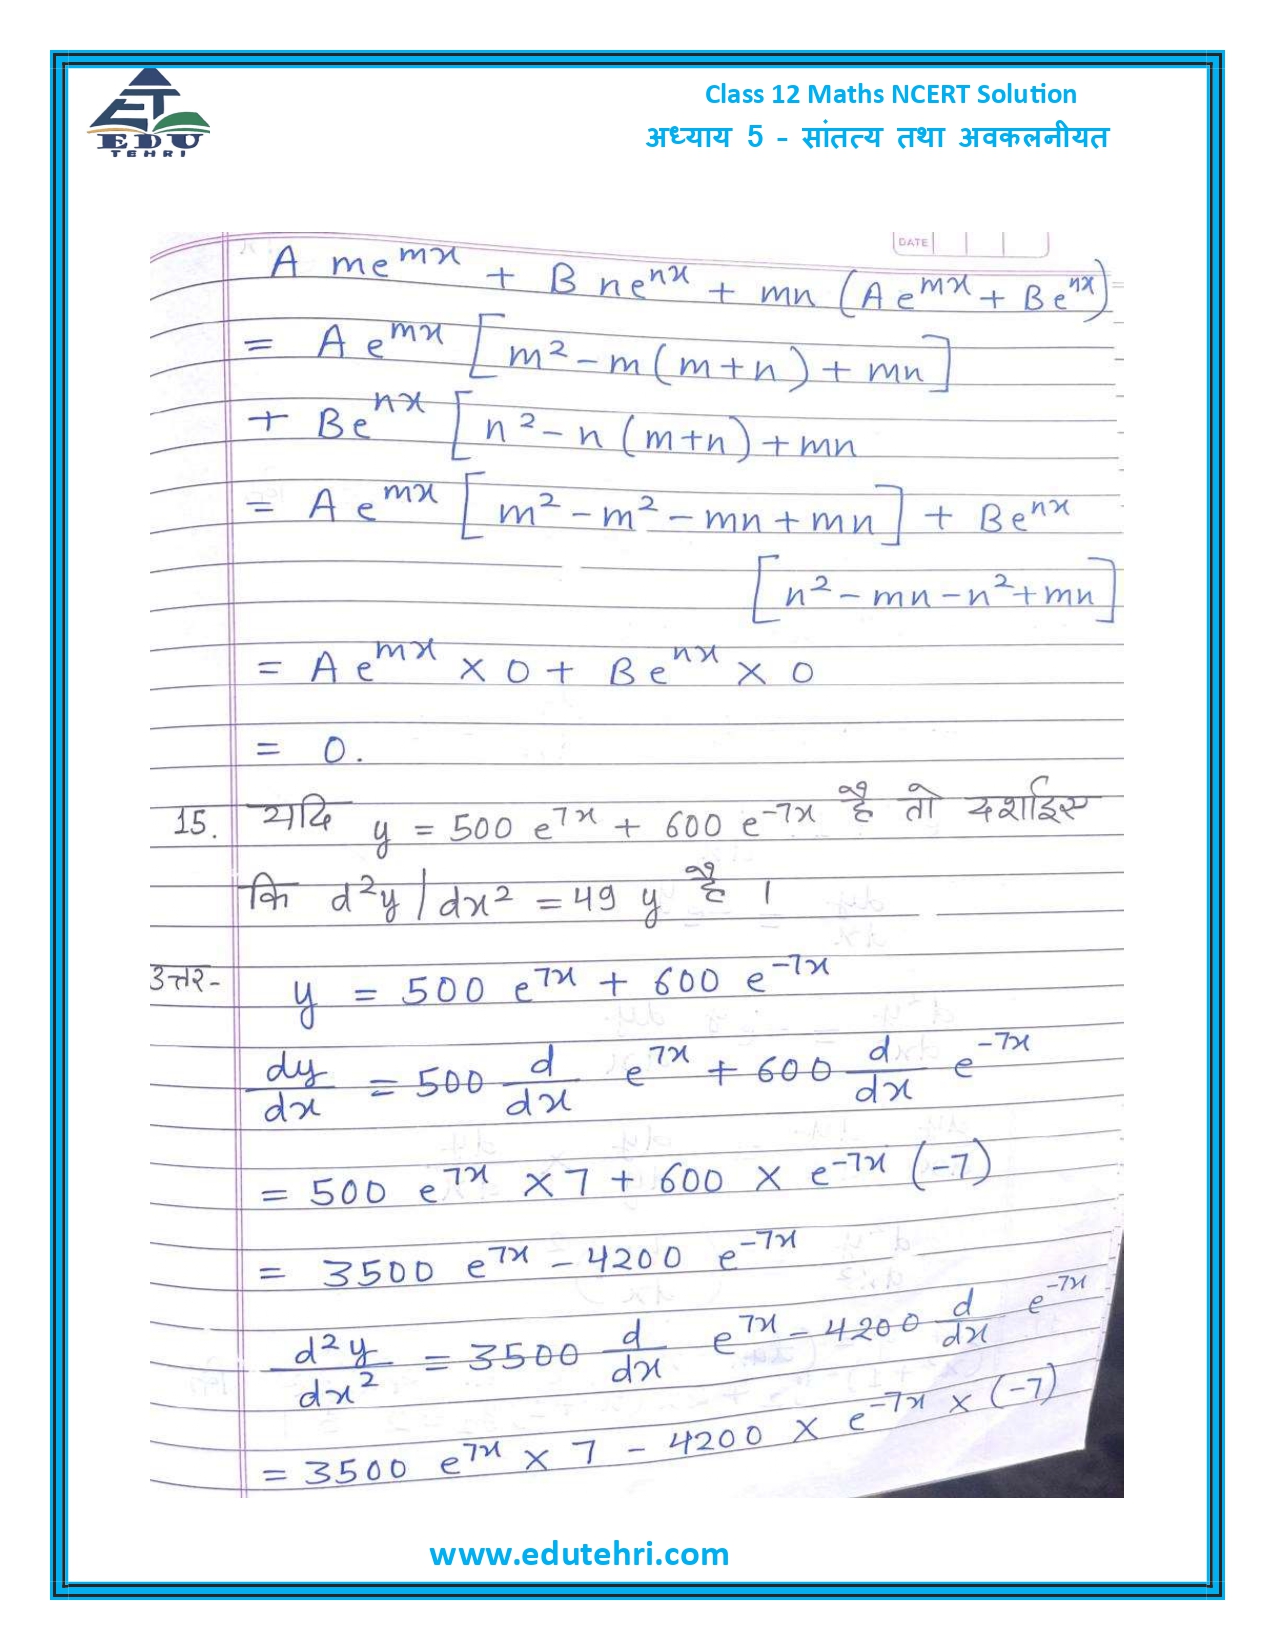 EDU
TEHRI
Class 12 Maths NCERT Solution
अध्याय 5 - सांतत्य तथा अवकलनीयत
DATE
A me^mx + B ne^nx + mn (A e^mx + B e^nx)
= A e^mx [m² - m(m+n) + mn]
+ Be^nx [n² - n(m+n) + mn
= A e^mx [m² - m² - mn + mn] + Be^nx
[n² - mn - n² + mn]
= A e^mx × 0 + Be^nx × 0
= 0.
15. यदि y = 500 e^7x + 600 e^-7x है तो दर्शाइए
कि d²y/dx² = 49 y है ।
उत्तर- y = 500 e^7x + 600 e^-7x
dy/dx = 500 d/dx e^7x + 600 d/dx e^-7x
= 500 e^7x × 7 + 600 × e^-7x (-7)
= 3500 e^7x - 4200 e^-7x
d²y/dx² = 3500 d/dx e^7x - 4200 d/dx e^-7x
= 3500 e^7x × 7 - 4200 × e^-7x × (-7)
www.edutehri.com